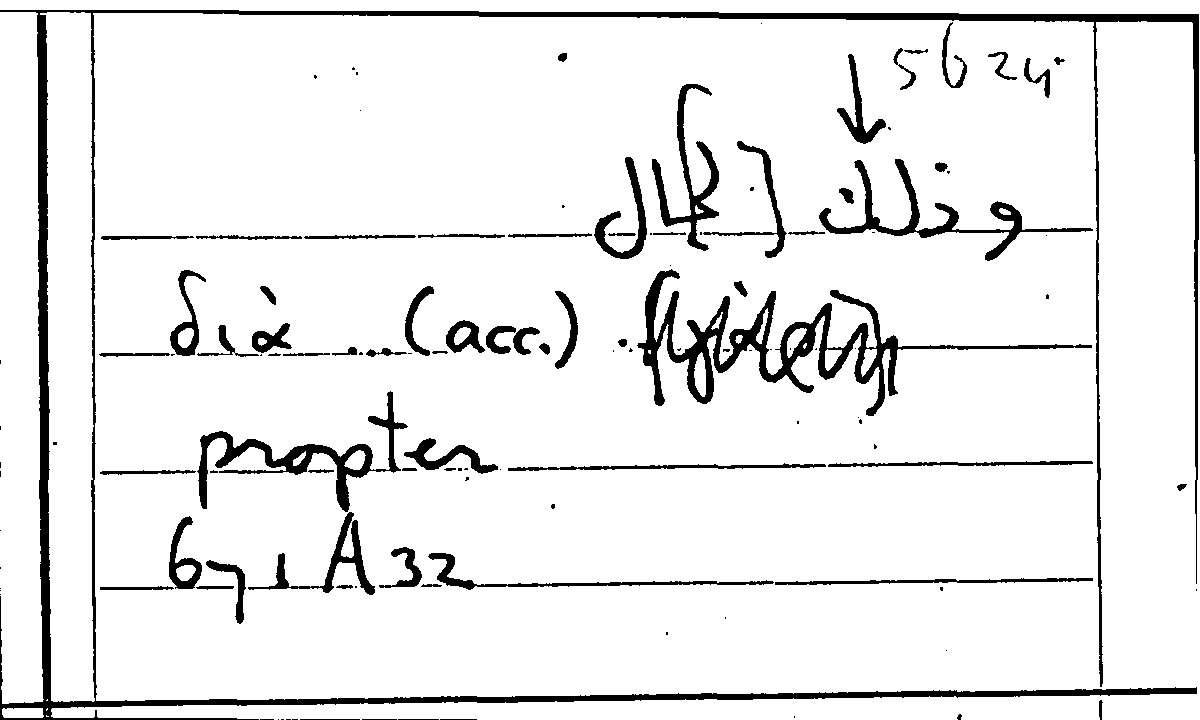 56 24
وذلك
διὰ ... (acc.)
propter
671 A 32